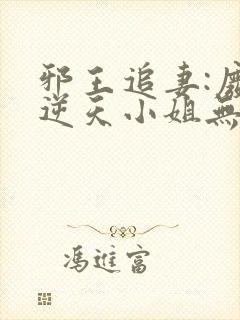 邪王追妻:
逆天小姐無
馮進富